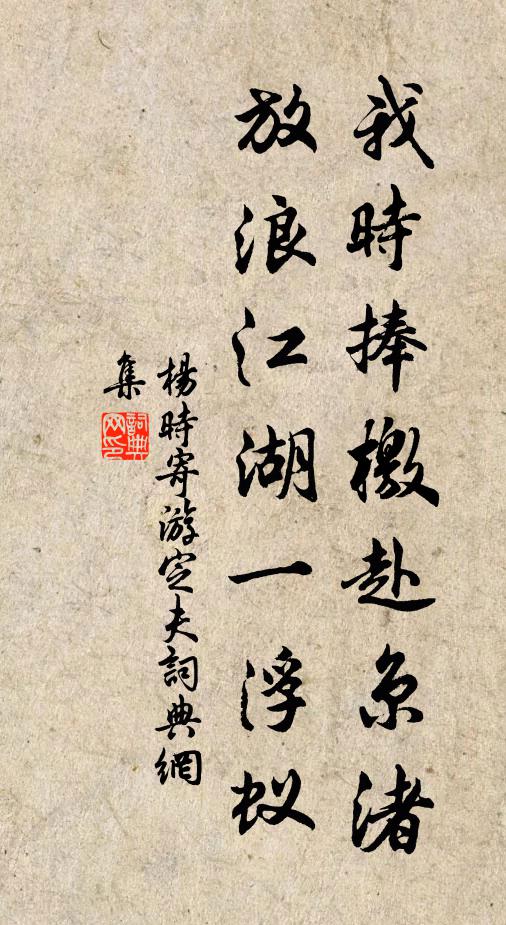 我時捧檄赴京渚
放浪江湖一浮蚁
楊時寄游定夫詞典網
集
詞典
网印